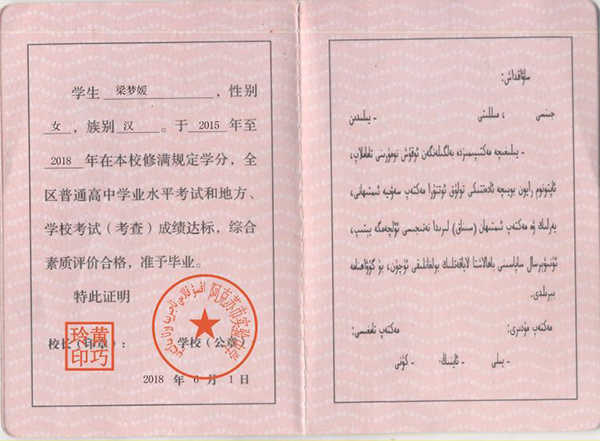 学生 梁梦媛 ，性别
女 ，族别 汉 。于 2015 年至
2018 年在本校修满规定学分，全
区普通高中学业水平考试和地方、
学校考试（考查）成绩达标，综合
素质评价合格，准予毕业。
特此证明
校长（印章）： 学校（公章）
黄巧玲印
阿克苏市实验
2018 年 6 月 1 日
ساۋاقداش:
جىنسى ، مىللىتى ـ يىلىدىن
ـ يىلىغىچە مەكتىپىمىزدە بەلگىلەنگەن ئوقۇش نومۇرىنى تاماملاپ،
ئاپتونوم رايون بويىچە ئادەتتىكى تولۇق ئوتتۇرا مەكتەپ سەۋىيە ئىمتىھانى،
يەرلىك ۋە مەكتەپ ئىمتىھان (سىناق) لىرىدا نەتىجىسى ئۆلچەمگە يېتىپ،
ئۇنىۋېرسال ساپاسىنى باھالاشتا لاياقەتلىك بولغانلىقى ئۈچۈن، بۇ گۇۋاھنامە
بېرىلدى.
مەكتەپ مۇدىرى: مەكتەپ تامغىسى:
ـ يىلى ـ ئاينىڭ ـ كۈنى